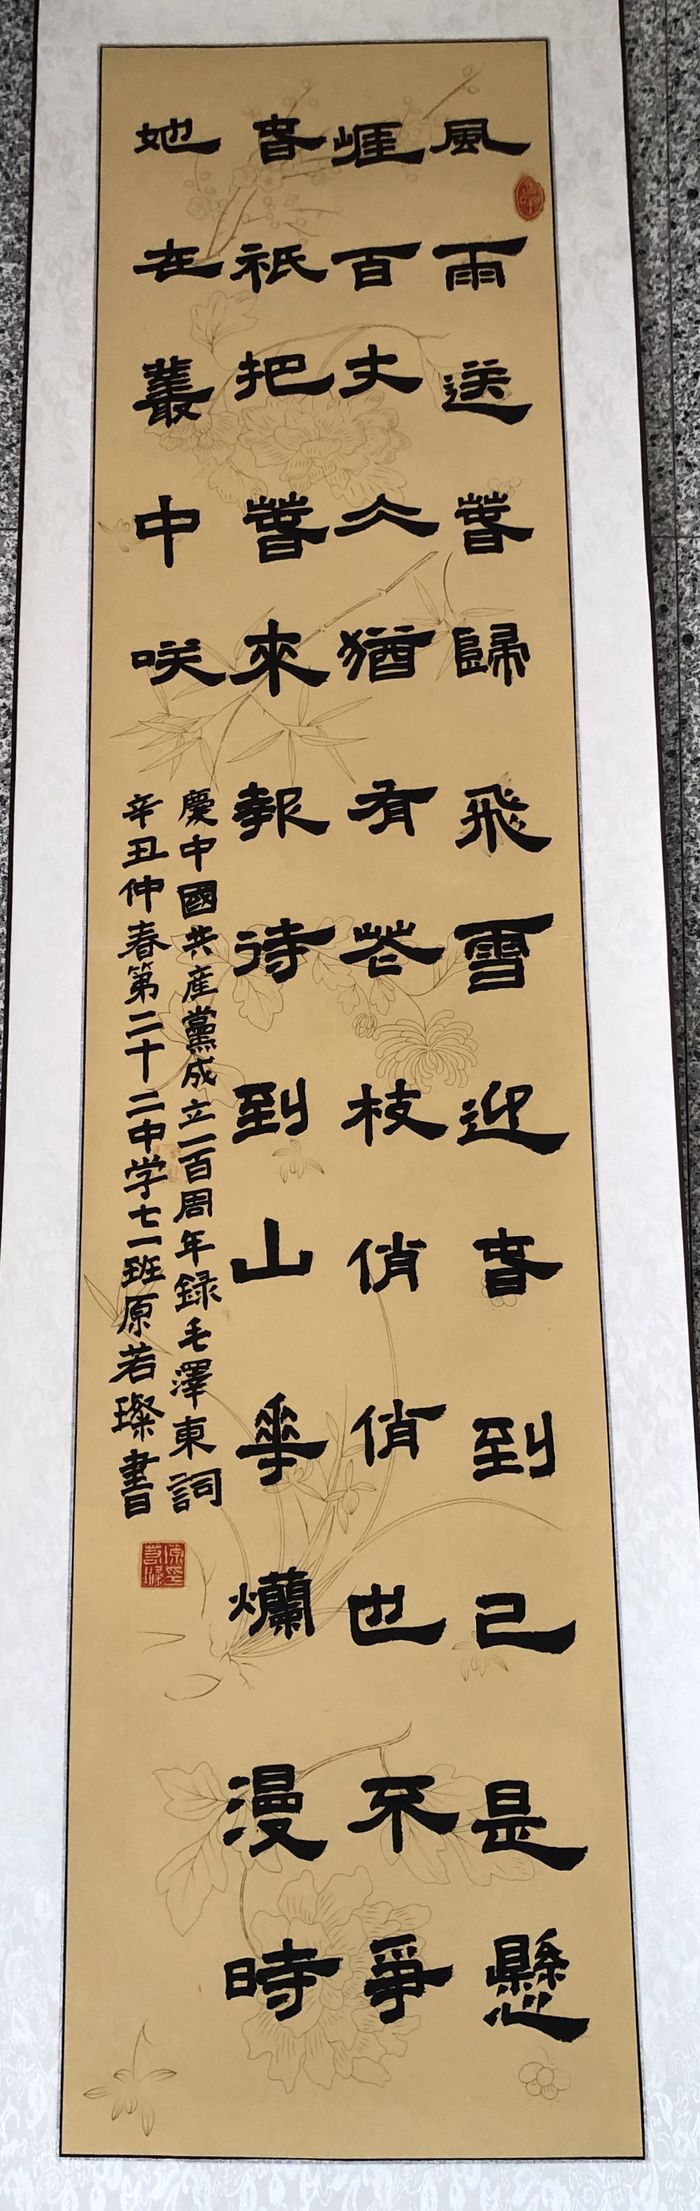 風雨送萅歸飛雪迎旾到已是懸
崕百丈仌猶有花枝俏俏也不爭
旾祇把萅來報待到山華爛漫時
她在叢中咲
慶中國共産黨成立一百周年録毛澤東詞
辛丑仲春第二十二中学七一班原若璨書